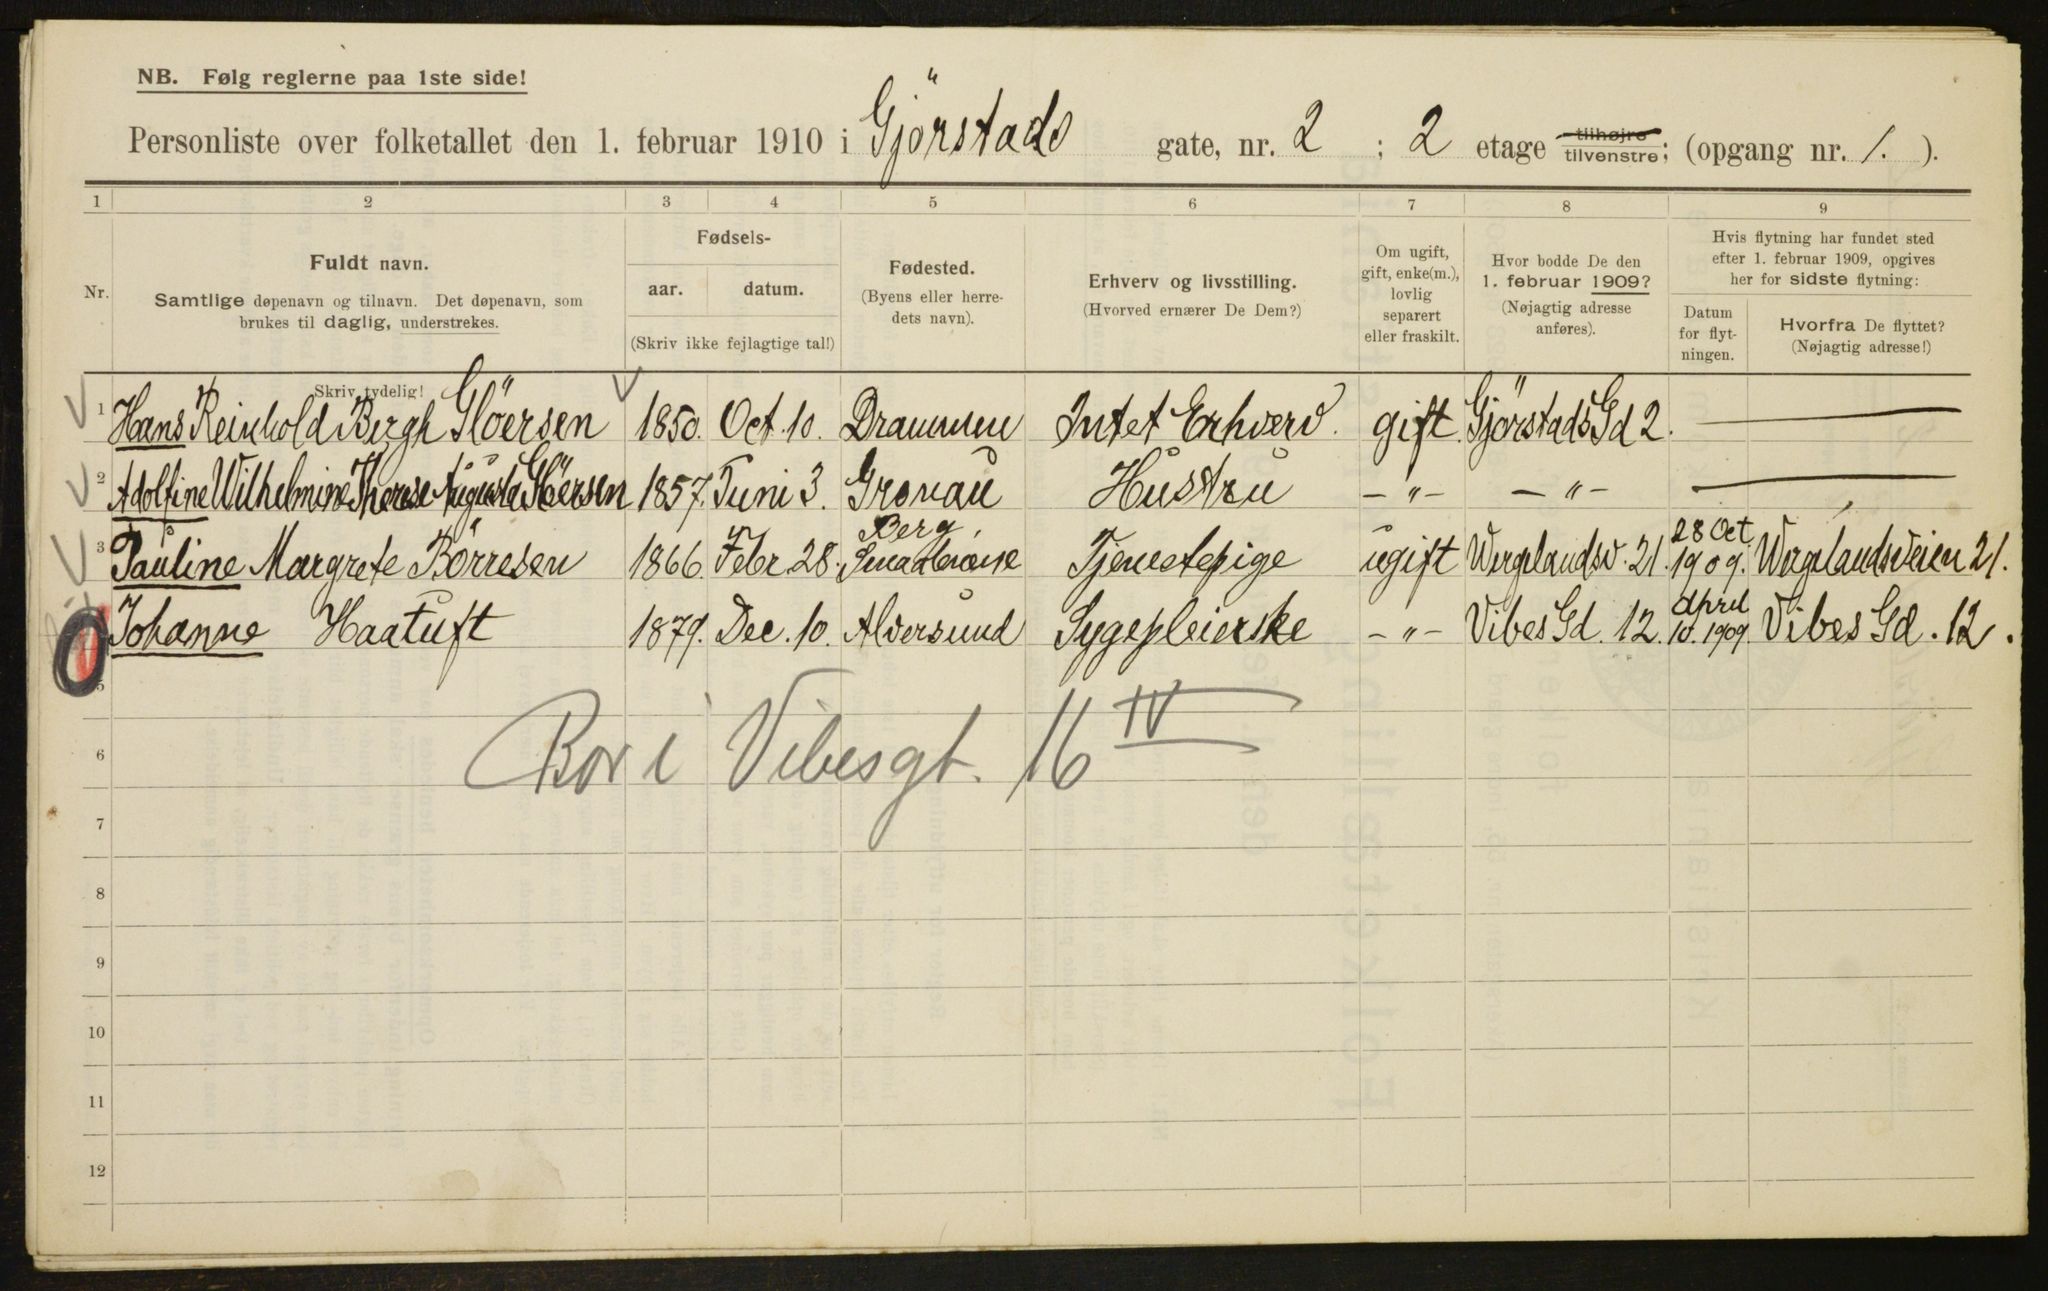 NB. Følg reglerne paa 1ste side!
Personliste over folketallet den 1. februar 1910 i Gjörstads gate, nr. 2 ; 2 etage tilhøjre tilvenstre; (opgang nr. 1. ).
1 2 3 4 5 6 7 8 9
Nr.
Fuldt navn.
Samtlige døpenavn og tilnavn. Det døpenavn, som
brukes til daglig, understrekes.
Skriv tydelig!
Fødsels-
aar. datum.
(Skriv ikke fejlagtige tal!)
Fødested.
(Byens eller herre-
dets navn).
Erhverv og livsstilling.
(Hvorved ernærer De Dem?)
Om ugift,
gift, enke(m.),
lovlig
separert
eller fraskilt.
Hvor bodde De den
1. februar 1909?
(Nøjagtig adresse
anføres).
Hvis flytning har fundet sted
efter 1. februar 1909, opgives
her for sidste flytning:
Datum
for flyt-
ningen.
Hvorfra De flyttet?
(Nøjagtig adresse!)
1 Hans Reinhold Bergh Glöersen 1850. Oct. 10. Drammen Intet Erhverv. gift. Gjörstads Gd 2.
2 Adolfine Wilhelmine Therese Augusta Glöersen 1857. Juni 3. Gronau Hustru – " – – " –
3 Pauline Margrete Börresen 1866. Febr. 28. Berg Smaalenene Tjenestepige ugift Wergelandsv. 21. 28 Oct. 1909. Wergelandsveien 21.
Johanne Haatuft 1879. Dec. 10. Alversund Sygepleierske – " – Vibes Gd. 12. April 10. 1909. Vibes Gd. 12.
5
Bor i Vibesgt. 16 IV
6
7
8
9
10
11
12